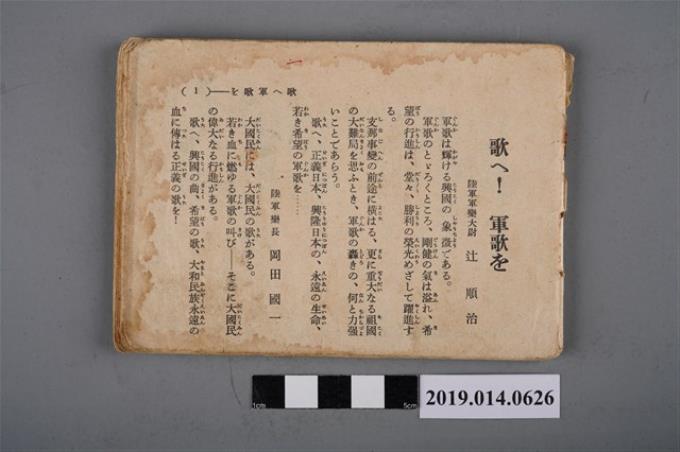 歌へ！　軍歌を
陸軍軍樂大尉　辻　順　治
軍歌は輝ける興國の象徴である。
軍歌のとゞろくところ、剛健の氣は溢れ、希
望の行進は、堂々、勝利の榮光めざして躍進す
る。
支那事變の前途に横はる、更に重大なる祖國
の大難局を思ふとき、軍歌の轟きの、何と力强
いことであらう。
歌へ、正義日本、興隆日本の、永遠の生命、
若き希望の軍歌を……
陸軍樂長　岡　田　國　一
大國民には、大國民の歌がある。
若き血に燃ゆる軍歌の叫び――そこに大國民
の偉大なる行進がある。
歌へ、興國の曲、希望の歌、大和民族永遠の
血に傳はる正義の歌を！
歌へ軍歌を――（1）
1cm
5cm
2019.014.0626